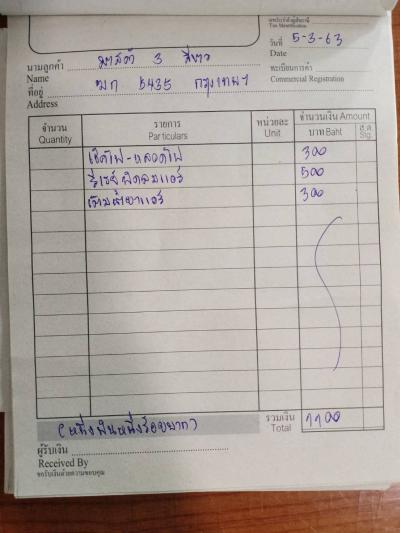 เลขประจำตัวผู้เสียภาษี
Tax Identification
นามลูกค้า มาสด้า 3 สีขาว
Name
วันที่ 5-3-63
Date
ที่อยู่ ฆก 5435 กรุงเทพฯ
Address
ทะเบียนการค้า
Commercial Registration
จำนวน รายการ หน่วยละ จำนวนเงิน Amount
Quantity Particulars Unit บาท Baht ส.ต. Stg.
เช็คไฟ-หลอดไฟ 300
รีเลย์พัดลมแอร์ 500
เติมน้ำยาแอร์ 300
(หนึ่งพันหนึ่งร้อยบาท) รวมเงิน 1100
Total
ผู้รับเงิน
Received By
ขอรับเงินด้วยความขอบคุณ